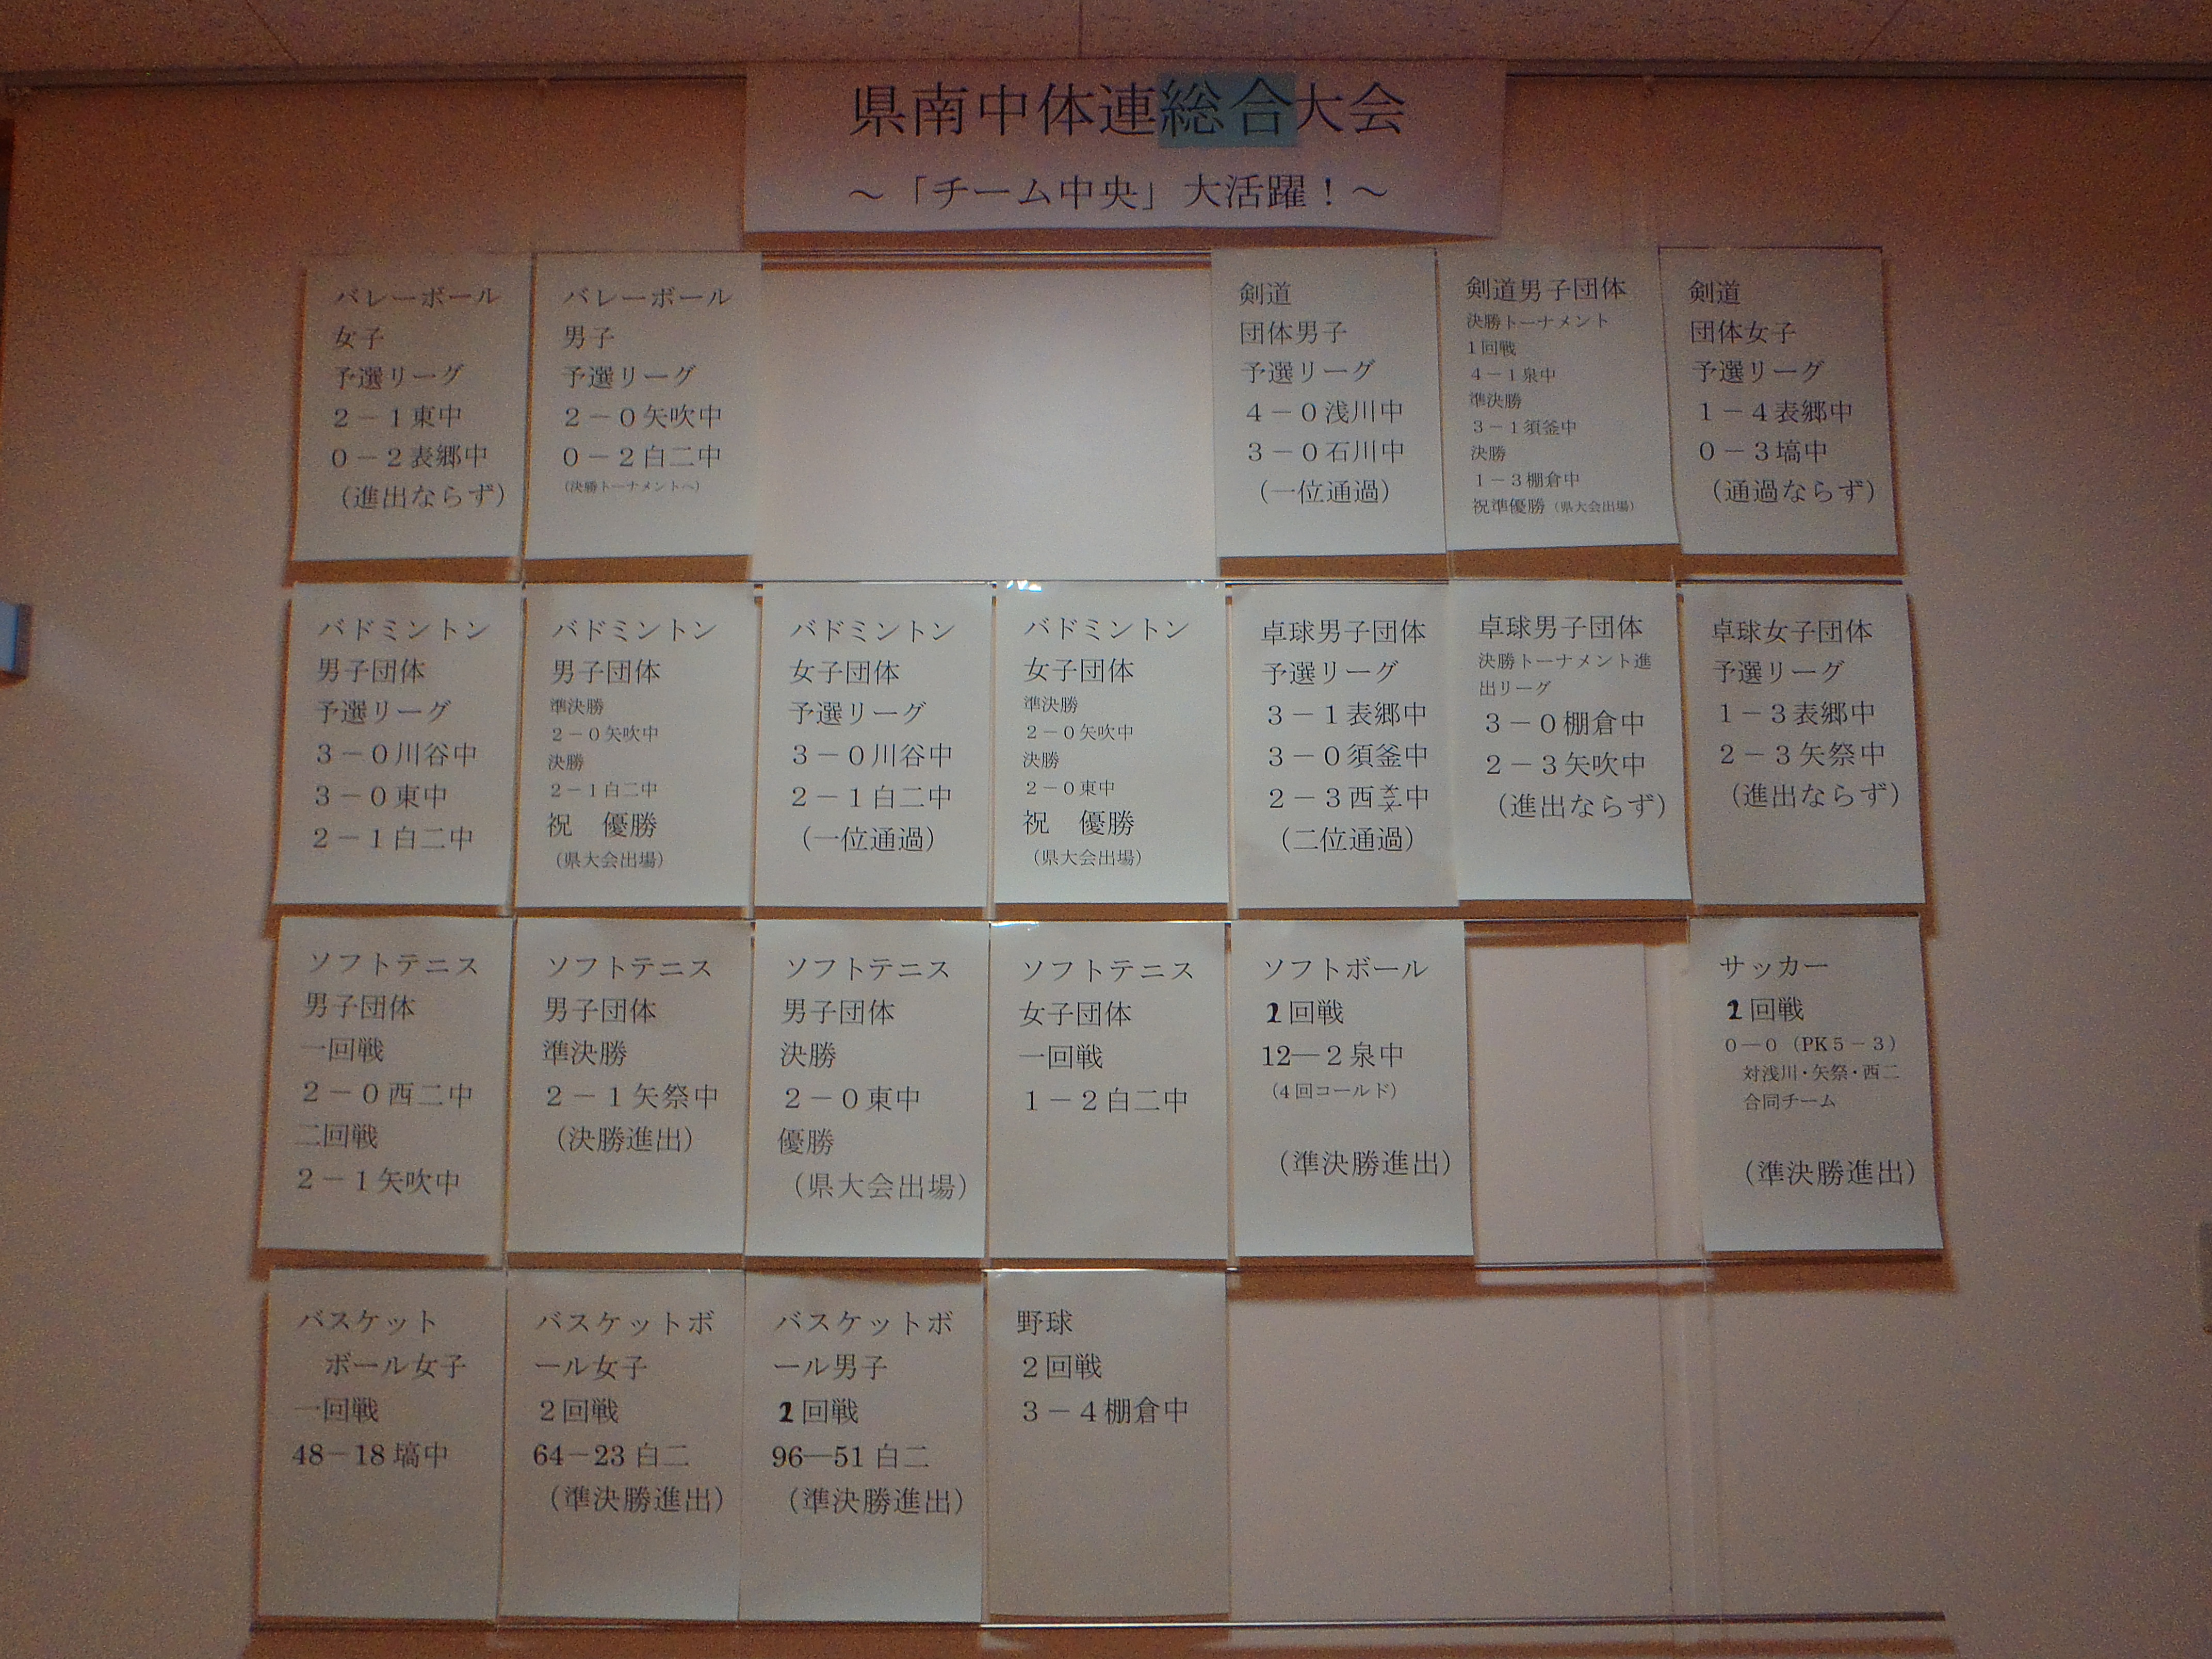 県南中体連総合大会
～「チーム中央」大活躍！～
バレーボール
女子
予選リーグ
２－１東中
０－２表郷中
（進出ならず）
バレーボール
男子
予選リーグ
２－０矢吹中
０－２白二中
（決勝トーナメントへ）
剣道
団体男子
予選リーグ
４－０浅川中
３－０石川中
（一位通過）
剣道男子団体
決勝トーナメント
１回戦
４－１泉中
準決勝
３－１須釜中
決勝
１－３棚倉中
祝準優勝（県大会出場）
剣道
団体女子
予選リーグ
１－４表郷中
０－３塙中
（通過ならず）
バドミントン
男子団体
予選リーグ
３－０川谷中
３－０東中
２－１白二中
バドミントン
男子団体
準決勝
２－０矢吹中
決勝
２－１白二中
祝　優勝
（県大会出場）
バドミントン
女子団体
予選リーグ
３－０川谷中
２－１白二中
（一位通過）
バドミントン
女子団体
準決勝
２－０矢吹中
決勝
２－０東中
祝　優勝
（県大会出場）
卓球男子団体
予選リーグ
３－１表郷中
３－０須釜中
２－３西中
（二位通過）
卓球男子団体
決勝トーナメント進
出リーグ
３－０棚倉中
２－３矢吹中
（進出ならず）
卓球女子団体
予選リーグ
１－３表郷中
２－３矢祭中
（進出ならず）
ソフトテニス
男子団体
一回戦
２－０西二中
二回戦
２－１矢吹中
ソフトテニス
男子団体
準決勝
２－１矢祭中
（決勝進出）
ソフトテニス
男子団体
決勝
２－０東中
優勝
（県大会出場）
ソフトテニス
女子団体
一回戦
１－２白二中
ソフトボール
2回戦
12―２泉中
（４回コールド）
（準決勝進出）
サッカー
2回戦
０―０（PK５－３）
対浅川・矢祭・西二
合同チーム
（準決勝進出）
バスケット
ボール女子
一回戦
48－18 塙中
バスケットボ
ール女子
２回戦
64－23 白二
（準決勝進出）
バスケットボ
ール男子
2回戦
96―51 白二
（準決勝進出）
野球
２回戦
３－４棚倉中